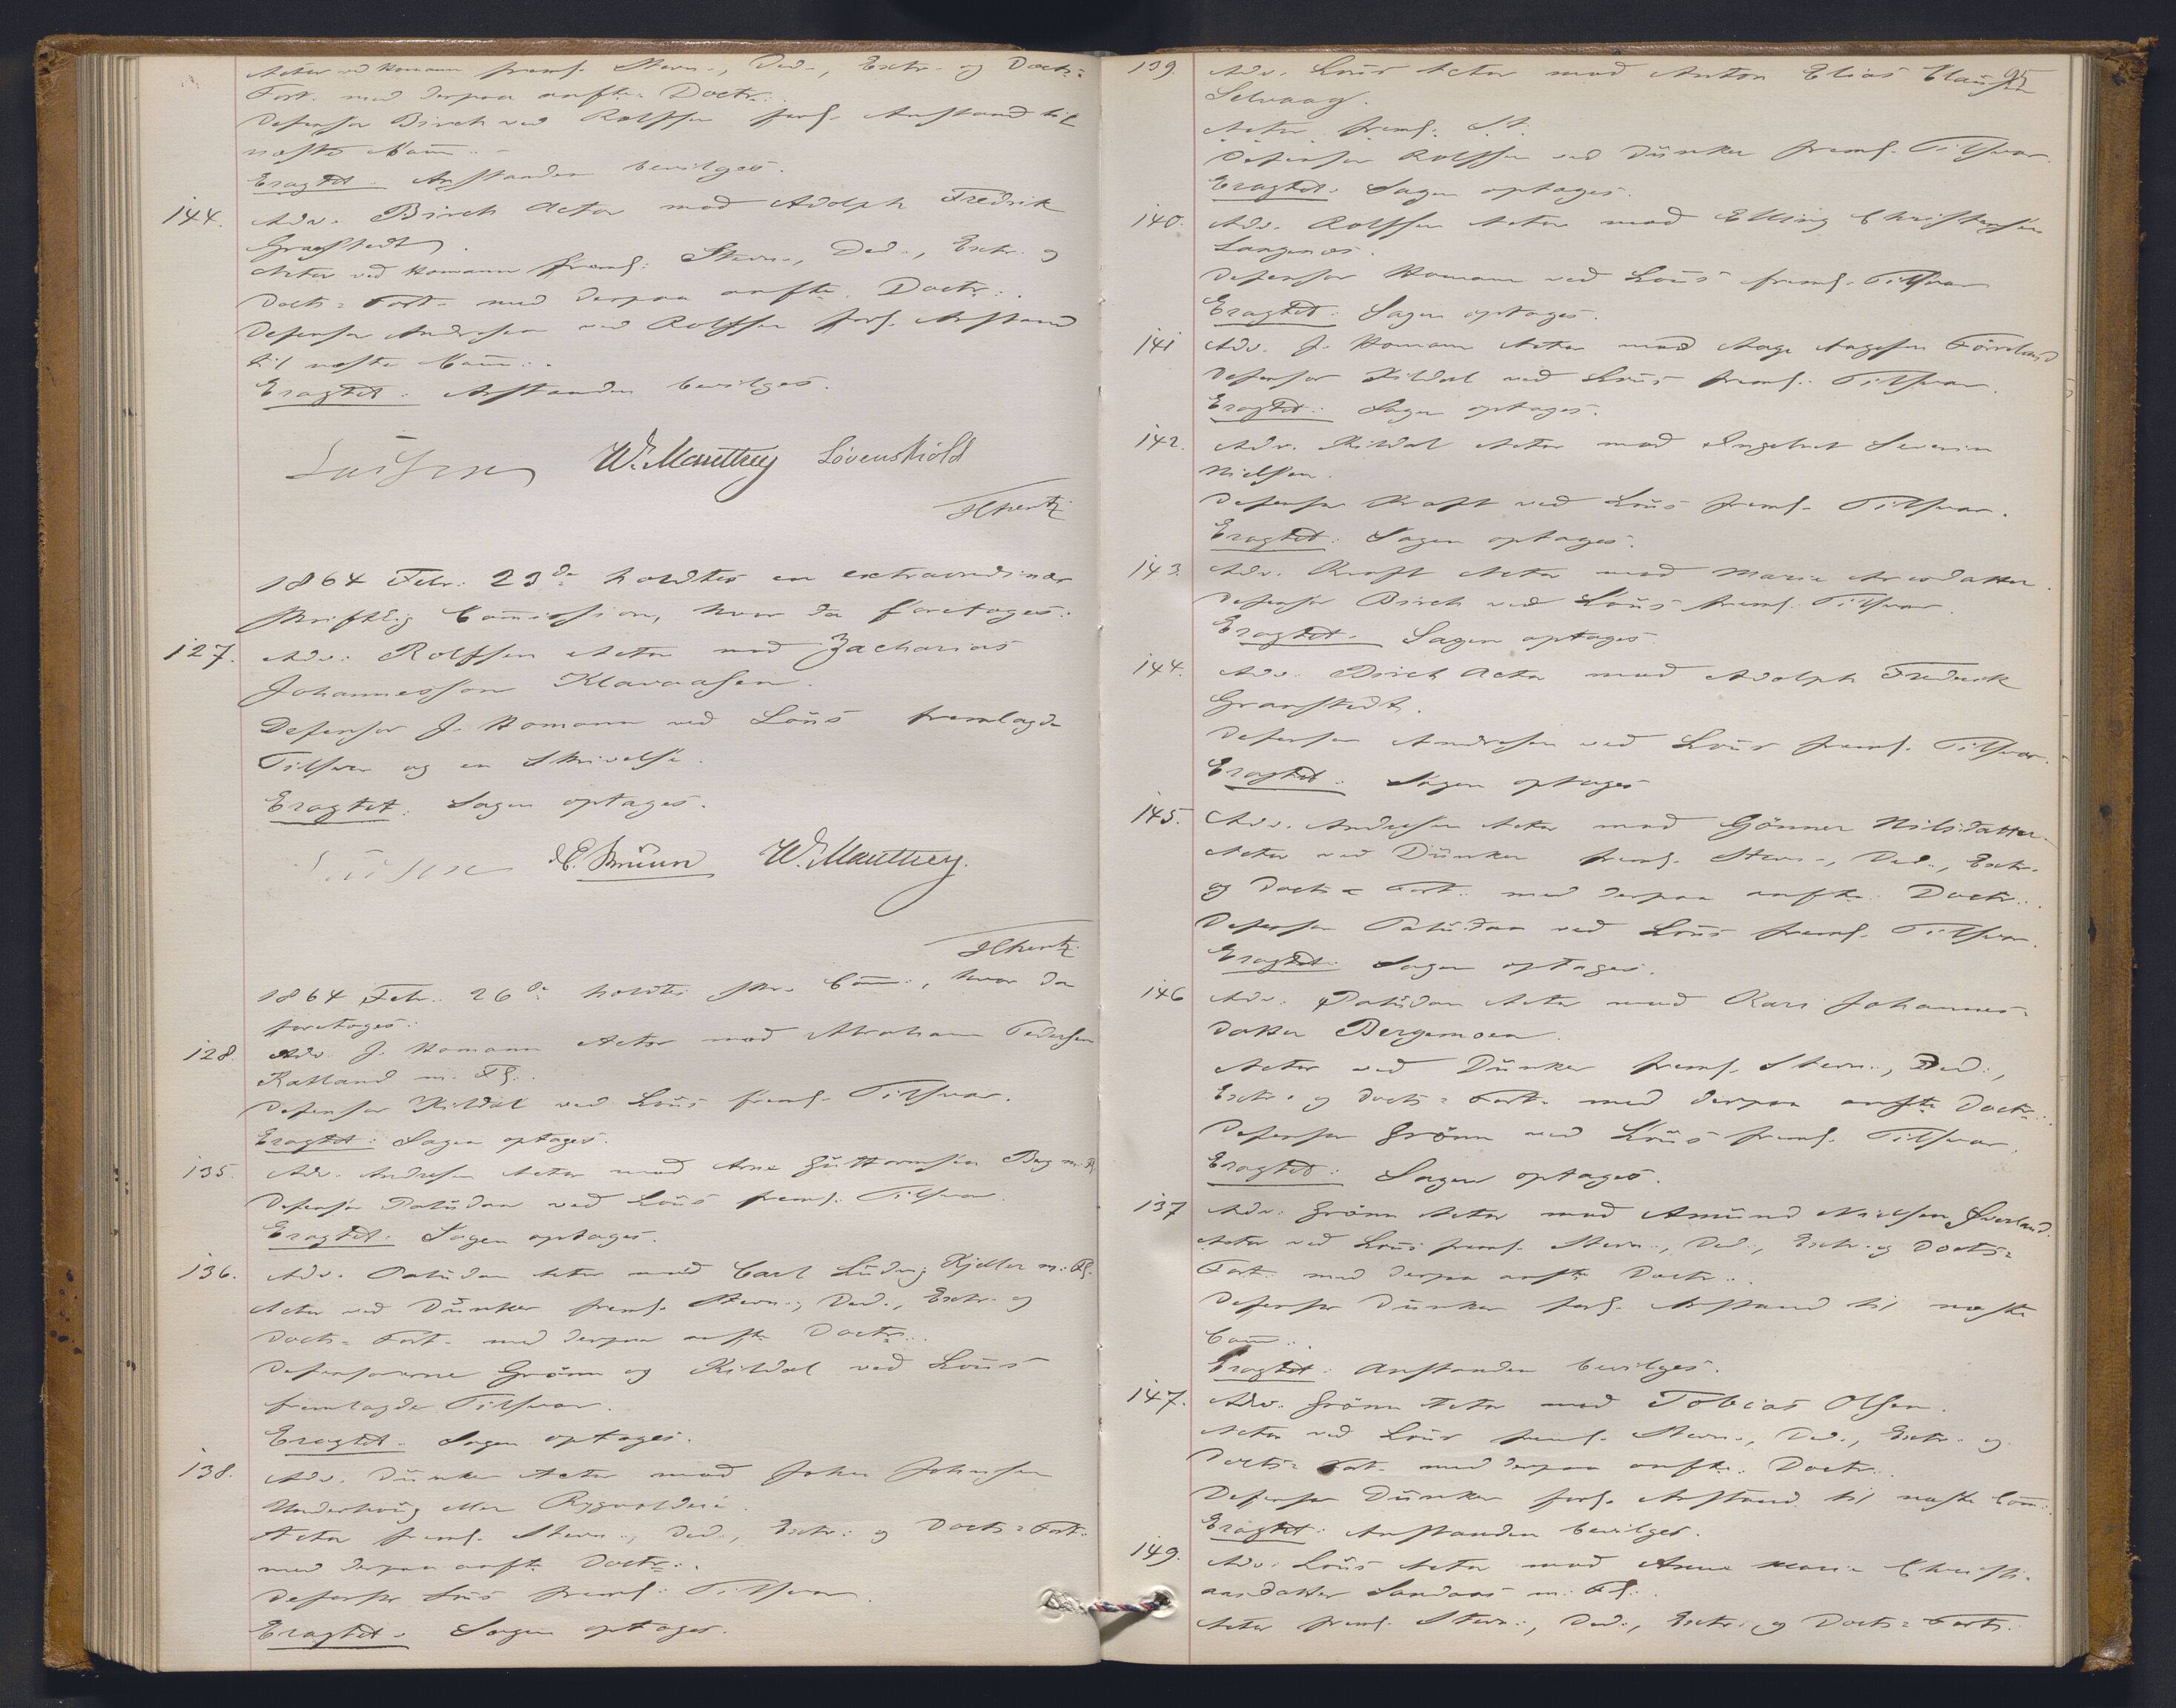 Actor ved Homann freml. Stevn., Ded., Extr. og Docts=
Fort. med derpaa anfte. Doctr.:
Defensor Birch ved Rolffsen forl. Anstand til
næste Com̅.:
Eragtet: Anstanden bevilges.
144. Adv. Birch Actor mod Adolph Fredrik
Granstedt.
Actor ved Homann freml: Stevn., Ded., Extr. og
Docts= Fort. med derpaa anfte. Doctr.:
Defensor Andresen ved Rolffsen forl. Anstand
til næste Com̅.:
Eragtet: Anstanden bevilges.
Lassen W. Manthey Løvenskiold
1864 Febr: 23de holdtes en extraordinær
skriftlig Com̅ission, hvor da foretoges:
127. Adv: Rolffsen Actor mod Zacharias
Johannesson Klavaasen.
Defensor J. Homann ved Löus fremlagde
Tilsvar og en Skrivelse.
Eragtet: Sagen optages.
Lassen E. Bruun W. Manthey.
1864 Febr. 26de holdtes skr. Com̅.:, hvor da
foretoges:
128. Adv. J. Homann Actor mod Abraham Pedersen
Ratland m. Fl.
Defensor Kildal ved Löus freml. Tilsvar.
Eragtet: Sagen optages.
135. Adv. Andresen Actor mod Arne Guttormsen Bag m. Fl.
Defensor Paludan ved Löus freml. Tilsvar.
Eragtet: Sagen optages.
136. Adv. Paludan Actor mod Carl Ludvig Kjeller m. Fl.
Actor ved Dunker freml. Stevn., Ded., Extr. og
Docts= Fort. med derpaa anfte Doctr.:
Defensorerne Grönn og Kildal ved Löus
fremlagde Tilsvar.
Eragtet: Sagen optages.
138. Adv. Dunker Actor mod John Johnsen
Underhoug eller
Actor freml. Stevn., Ded., Extr. og Docts= Fort.
med derpaa anfte Doctr.:
Defensor Löus freml. Tilsvar.
Eragtet: Sagen optages.
95
139 Adv. Löus Actor mod Anton Elias Clausen
Selvaag.
Actor freml. St.
Defensor Rolffsen ved Dunker freml. Tilsvar.
Eragtet: Sagen optages.
140. Adv. Rolffsen Actor mod Elling Christensen
Langenes.
Defensor Homann ved Löus freml. Tilsvar
Eragtet: Sagen optages.
141 Adv. J. Homann Actor mod Aage Aagesen Förreland
Defensor Kildal ved Löus freml. Tilsvar.
Eragtet: Sagen optages.
142. Adv. Kildal Actor mod Ingebret Severin
Nielsen.
Defensor Kraft ved Löus freml. Tilsvar.
Eragtet: Sagen optages.
143. Adv. Kraft Actor mod Marie Arnsdatter.
Defensor Birch ved Löus freml. Tilsvar.
Eragtet: Sagen optages.
144. Adv. Birch Actor mod Adolph Fredrik
Granstedt.
Defensor Andresen ved Löus freml. Tilsvar.
Eragtet: Sagen optages
145. Adv. Andresen Actor mod Gönner Nilsdatter.
Actor ved Dunker freml. Stevn., Ded., Extr.
og Docts= Fort. med derpaa anfte. Doctr.:
Defensor Paludan ved Löus freml. Tilsvar.
Eragtet: Sagen optages.
146 Adv. Paludan Actor mod Kari Johannes-
datter Bergemoen.
Actor ved Dunker freml. Stevn., Ded.,
Extr. og Docts= Fort. med derpaa anfte Doctr.:
Defensor Grönn ved Löus freml. Tilsvar.
Eragtet: Sagen optages.
137 Adv. Grönn Actor mod Amund Nielsen Øverland.
Actor ved Löus freml. Stevn., Ded., Extr. og Docts=
Fort. med derpaa anfte Doctr.:
Defensor Dunker forl. Anstand til næste
Com̅.:
Eragtet: Anstanden bevilges.
147. Adv. Grönn Actor mod Tobias Olsen.
Actor ved Löus freml. Stevn., Ded., Extr. og
Docts= Fort. med derpaa anfte. Doctr.:
Defensor Dunker forl. Anstand til næste Com̅.:
Eragtet: Anstanden bevilges.
149. Adv. Löus Actor mod Anne Marie Christi-
ansdatter Sandaas m. Fl.
Actor freml. Stevn., Ded., Extr. og Docts= Fort.